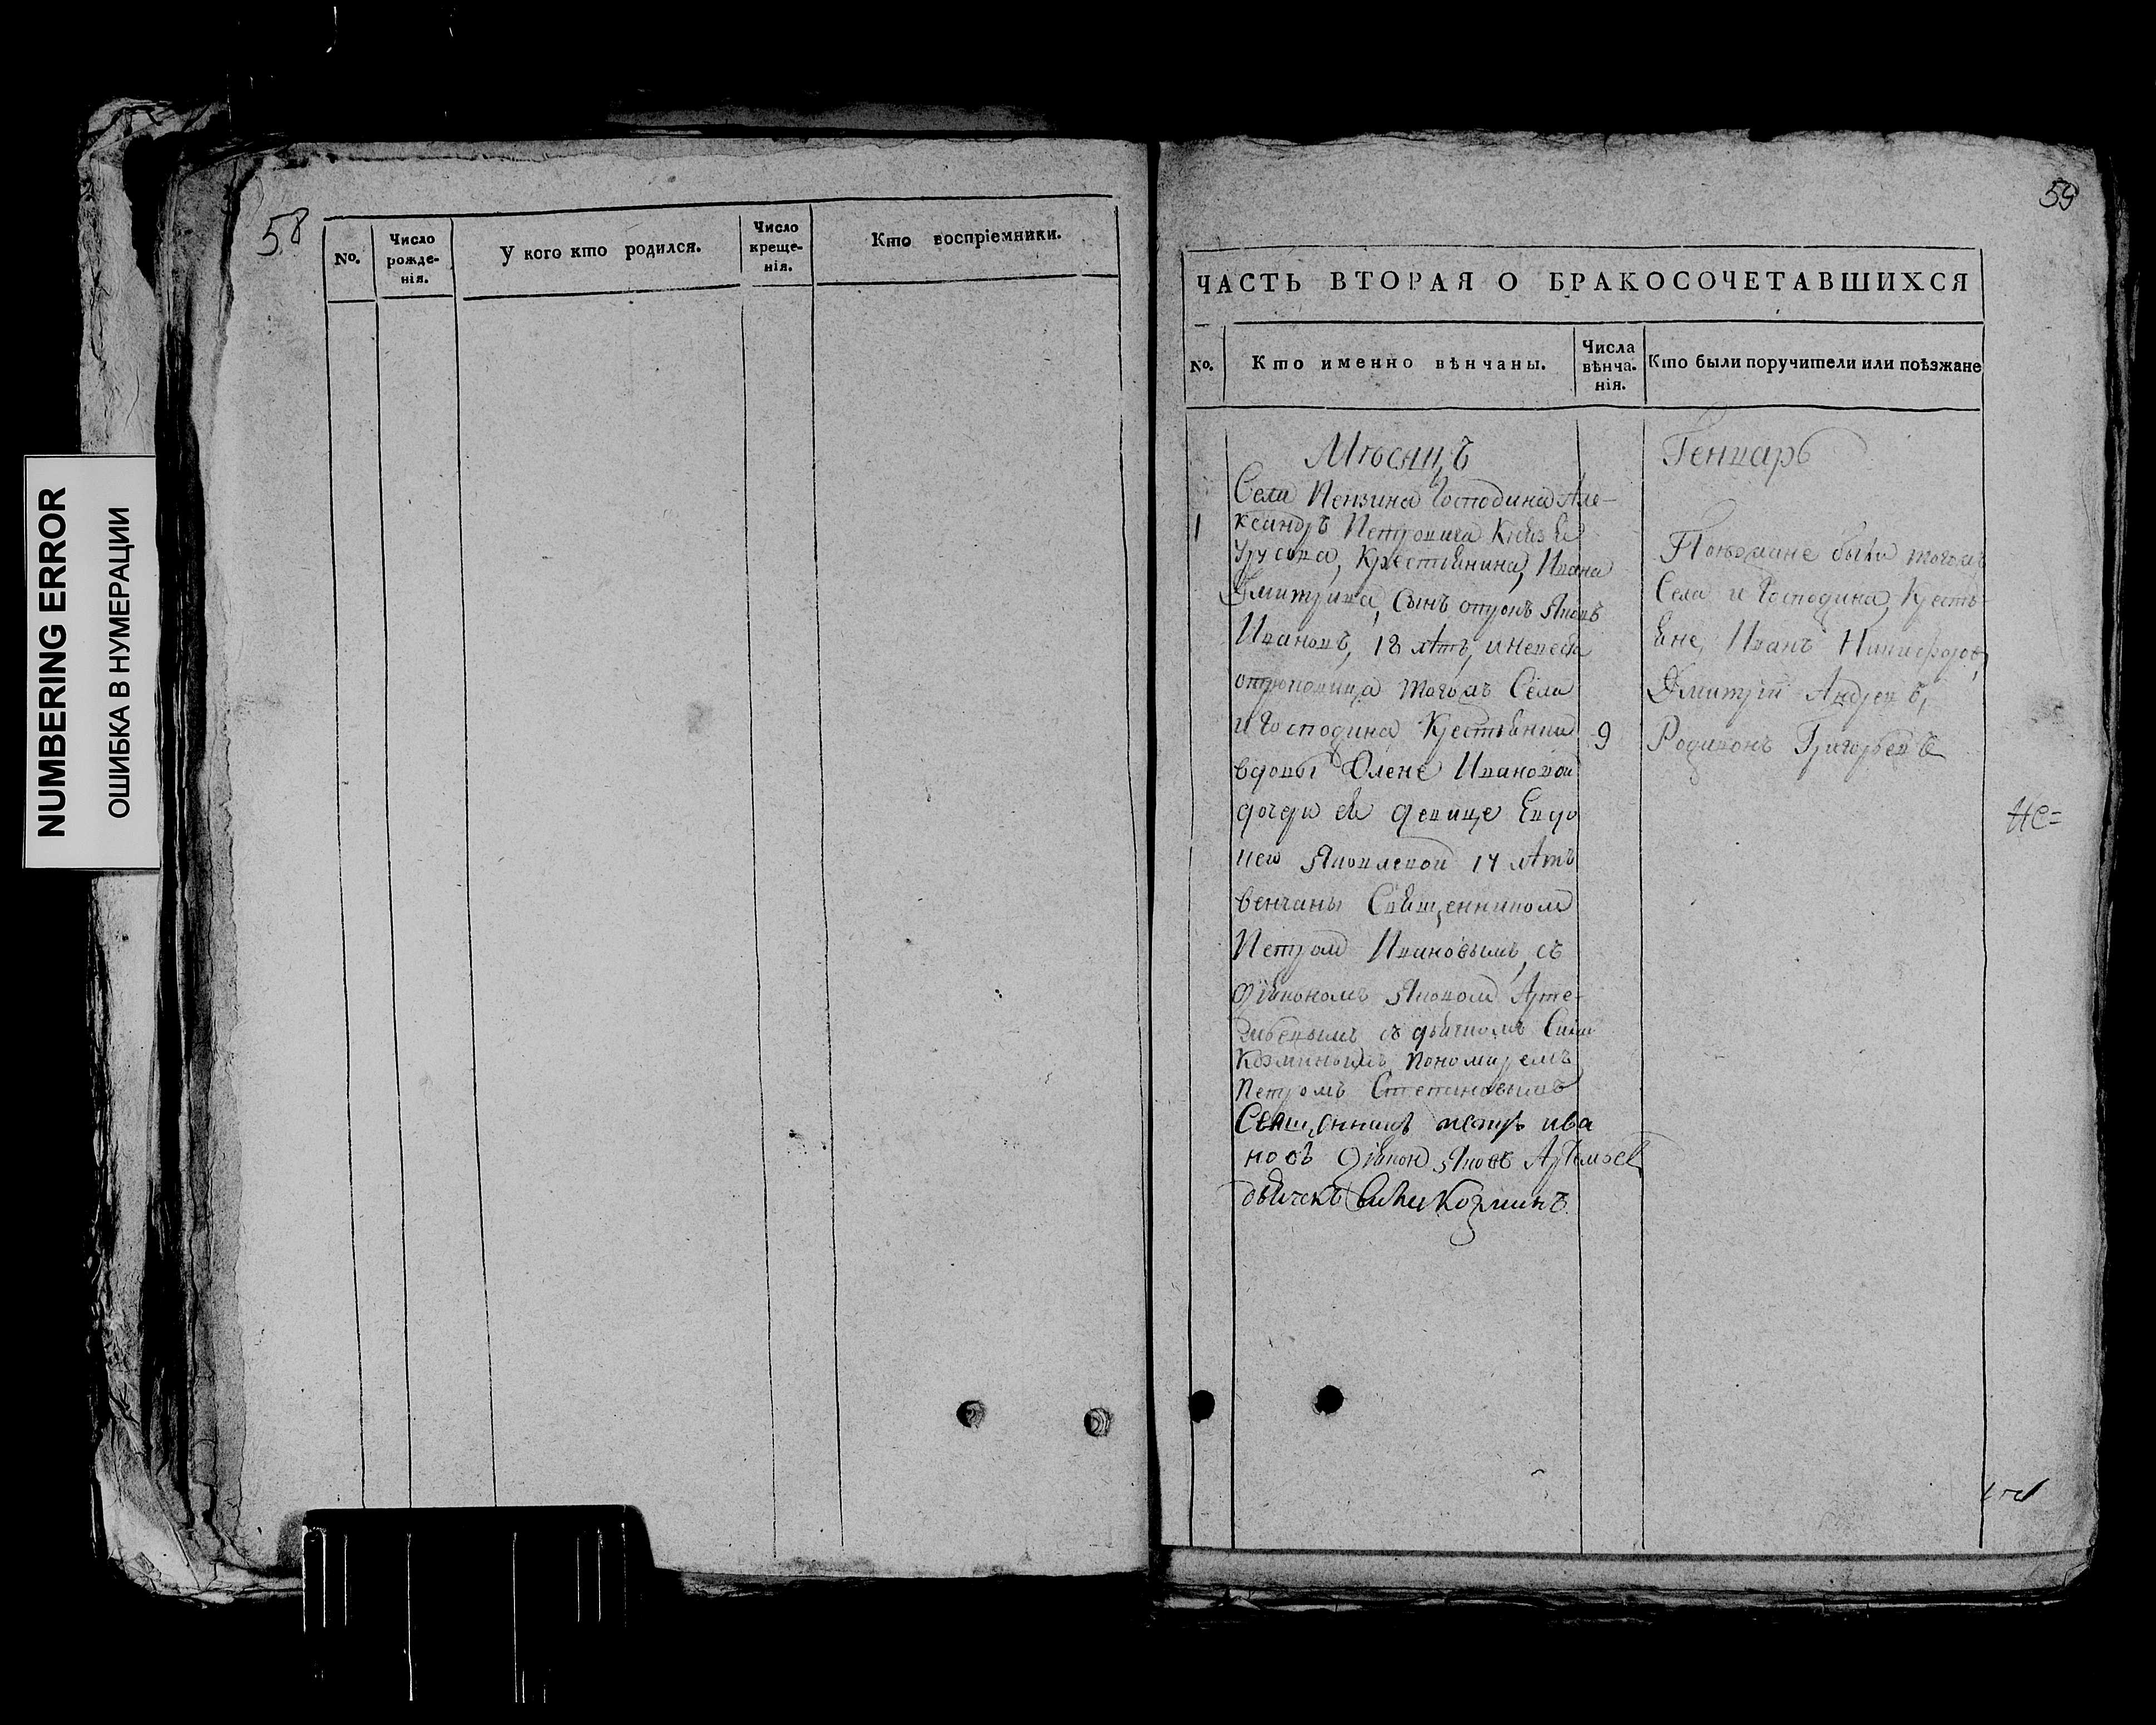 NUMBERING ERROR
ОШИБКА В НУМЕРАЦИИ
58
No.
Число рожде-
нія.
У кого кто родился.
Число креще-
нія.
Кто воспріемники.
59
ЧАСТЬ ВТОРАЯ О БРАКОСОЧЕТАВШИХСЯ
No.
Кто именно вѣнчаны.
Числа вѣнча.
нія.
Кто были поручители или поѣзжане
Мѣсяцъ
Генварь
1
Села Пензина Господина Але-
ксандръ Петровича Князѣ
Урусова, Крестьянина, Ивана
Дмитрива, Сынъ отрокъ Яковъ
Ивановъ, 18 лѣтъ, иневеста
отроковица тогожъ Села
и Господина Крестьянки
вдовы Олене Ивановой
дочери ея девице Евдо
кею Яковлевой 17 лѣтъ
венчаны Священником
Петром Ивановымъ, съ
діякономъ Яковом Арте-
мьевымъ съ дьячкомъ
Козминымъ Пономаремъ
Петромъ Степановымъ
Священникъ петръ ива
новъ діякон Яковъ Артемьев
дьячекъ Козминъ.
9
Поезжане были тогожъ
Села и Господина, Кресть
яне, Иванъ Никифоров,
Дмитрій Андревъ,
Родивонъ Григорьевъ